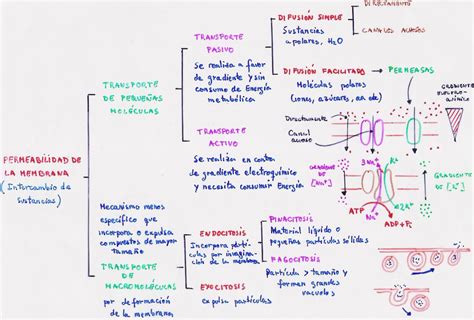 PERMEABILIDAD DE
LA MEMBRANA
(Intercambio de
sustancias)
TRANSPORTE
DE PEQUEÑAS
MOLÉCULAS
TRANSPORTE
PASIVO
Se realiza a favor
de gradiente y sin
consumo de Energía
metabólica
DIFUSIÓN SIMPLE
Sustancias
apolares, H2O
DIRECTAMENTE
CANALES ACUOSOS
DIFUSIÓN FACILITADA → PERMEASAS
Moléculas polares
(iones, azúcares, aa etc)
TRANSPORTE
ACTIVO
Se realizan en contra
de gradiente electroquímico
y necesita consumir Energía
Directamente
Canal
acuoso
GRADIENTE
ELECTRO-
QUÍMICO
GRADIENTE
DE
[Na+]
3Na+
K+
GRADIENTE
DE
[K+]
ATP
Na+
2K+
ADP + Pi
Mecanismo menos
específico que
incorpora o expulsa
compuestos de mayor
tamaño
TRANSPORTE
DE
MACROMOLÉCULAS
por deformación
de la membrana
ENDOCITOSIS
Incorpora partíc
ulas por invagina
ción de la membrana
PINOCITOSIS
Material líquido o
pequeñas partículas sólidas
FAGOCITOSIS
Partícula > tamaño y
forman grandes
vacuolas
EXOCITOSIS
expulsa partículas